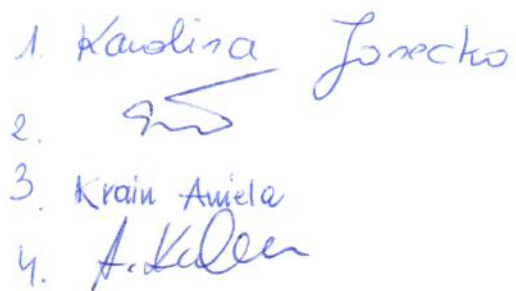 1. Karolina Jonecko
2.
3. Krain Aniela
4. A.